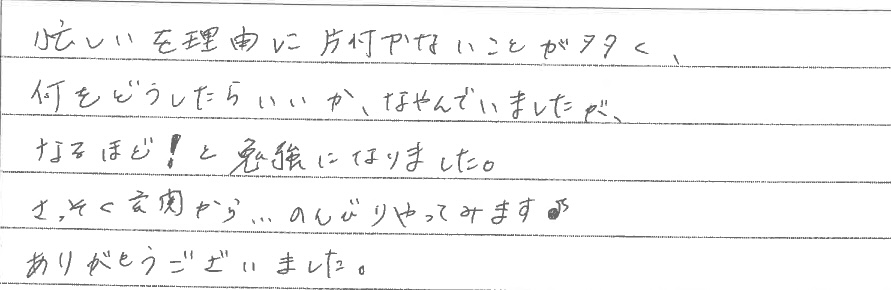 忙しいを理由に片付かないことが多く、
何をどうしたらいいか、なやんでいましたが、
なるほど!と勉強になりました。
さっそく玄関から…のんびりやってみます♪
ありがとうございました。